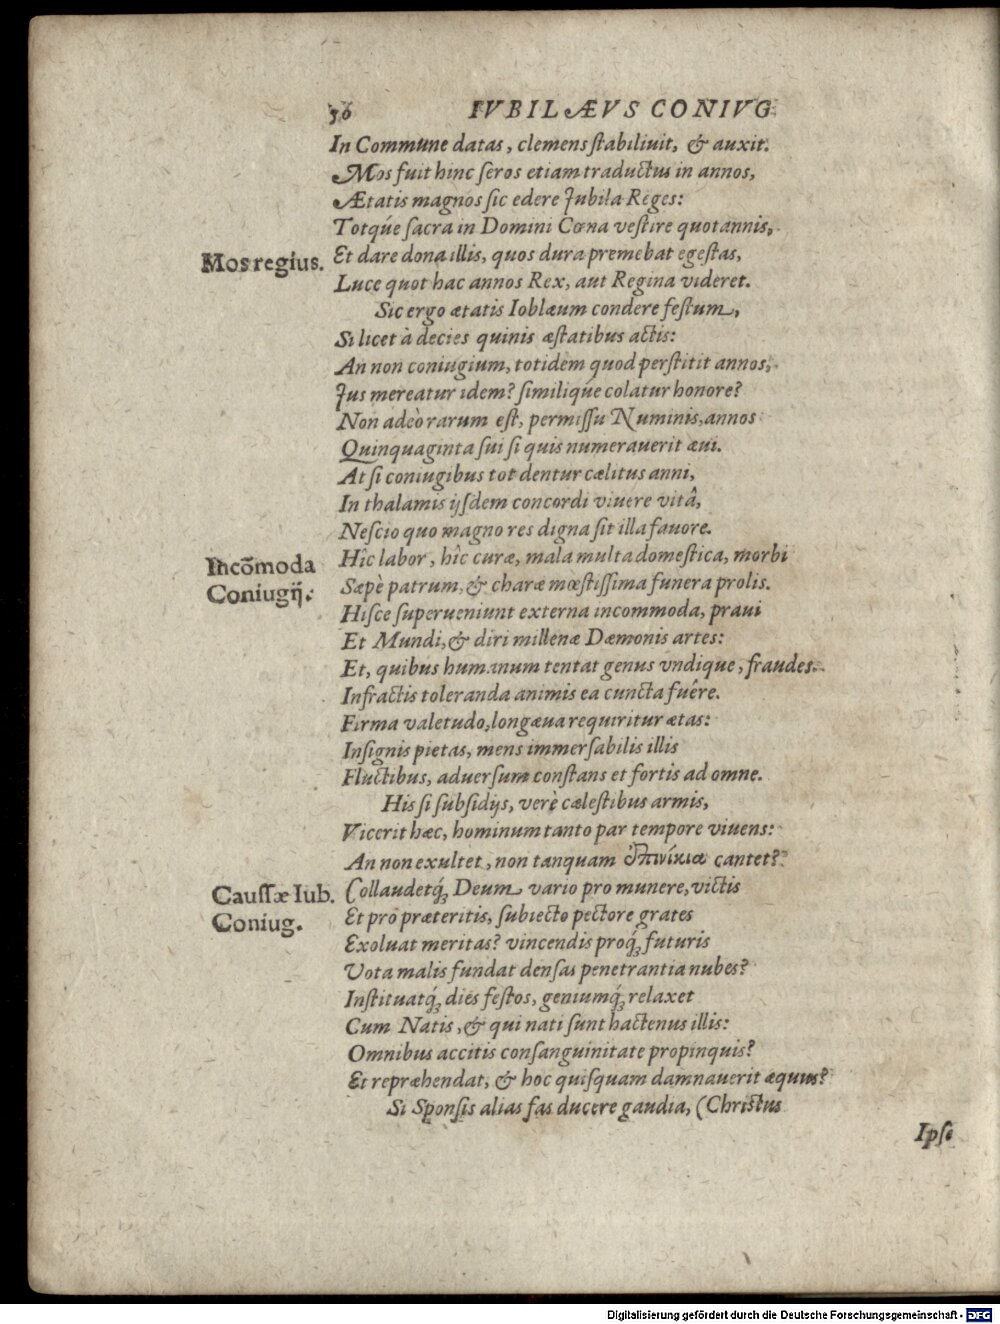 36 IVBILÆVS CONIVG.
In Commune datas, clemens ſtabiliuit, & auxit.
Mos fuit hinc ſeros etiam traductus in annos,
Ætatis magnos ſic edere Jubila Reges:
Totq́ue ſacra in Domini Cœna veſtire quotannis,
Mos regius. Et dare dona illis, quos dura premebat egeſtas,
Luce quot hac annos Rex, aut Regina videret.
Sic ergo ætatis Ioblæum condere feſtum,
Si licet à decies quinis æſtatibus actis:
An non coniugium, totidem quod perſtitit annos,
Jus mereatur idem? ſimiliq́ue colatur honore?
Non adeò rarum eſt, permiſſu Numinis, annos
Quinquaginta ſui ſi quis numerauerit æui.
At ſi coniugibus tot dentur cælitus anni,
In thalamis ijſdem concordi viuere vitâ,
Neſcio quo magno res digna ſit illa fauore.
Incōmoda Hîc labor, hîc curæ, mala multa domeſtica, morbi
Coniugij. Sæpè patrum, & charæ mœſtiſſima funera prolis.
Hiſce ſuperueniunt externa incommoda, praui
Et Mundi, & diri millenæ Dæmonis artes:
Et, quibus humanum tentat genus vndique, fraudes.
Infractis toleranda animis ea cuncta fuêre.
Firma valetudo, longæua requiritur ætas:
Inſignis pietas, mens immerſabilis illis
Fluctibus, aduerſum conſtans et fortis ad omne.
His ſi ſubſidijs, verè cæleſtibus armis,
Vicerit hæc, hominum tanto par tempore viuens:
An non exultet, non tanquam ἐπινίκια cantet?
Cauſſæ Iub. Collaudetq́ꝫ Deum vario pro munere, victis
Coniug. Et pro præteritis, ſubiecto pectore grates
Exoluat meritas? vincendis proq́ꝫ futuris
Vota malis fundat denſas penetrantia nubes?
Inſtituatq́ꝫ dies feſtos, geniumq́ꝫ relaxet
Cum Natis, & qui nati ſunt hactenus illis:
Omnibus accitis conſanguinitate propinquis?
Et repræhendat, & hoc quiſquam damnauerit æquus?
Si Sponſis alias fas ducere gaudia, (Chriſtus
Ipſe
Digitalisierung gefördert durch die Deutsche Forschungsgemeinschaft - DFG